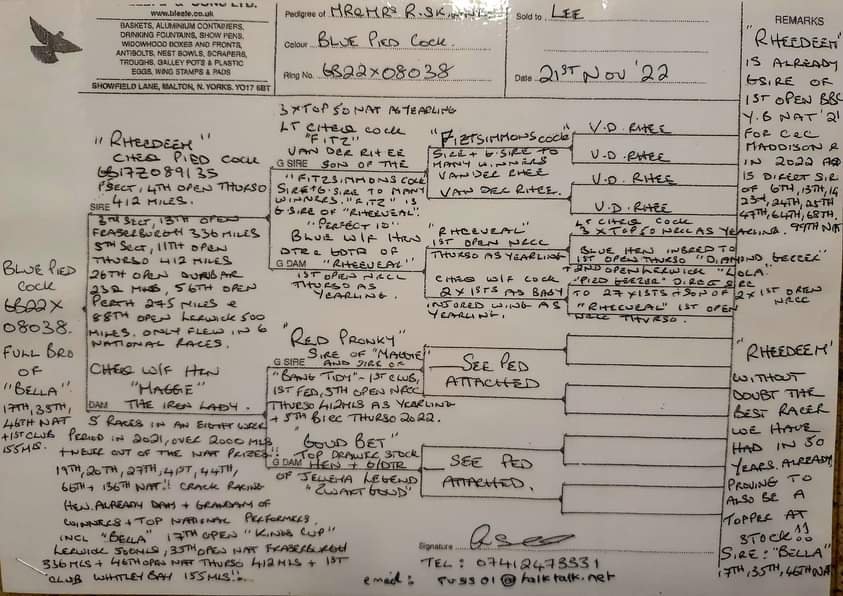 www.bleate.co.uk
BASKETS, ALUMINIUM CONTAINERS,
DRINKING FOUNTAINS, SHOW PENS,
WIDOWHOOD BOXES AND FRONTS,
ANTIBOLTS, NEST BOWLS, SCRAPERS,
TROUGHS, GALLEY POTS & PLASTIC
EGGS, WING STAMPS & PADS
SHOWFIELD LANE, MALTON, N. YORKS. YO17 6BT
Pedigree of MR & MRS R.SK
Colour BLUE PIED COCK.
Ring No. GB22X08038
Sold to LEE
Date 21ST NOV '22
REMARKS
"RHEEDEEM"
IS ALREADY
GSIRE OF
1ST OPEN BBC
Y.B NAT '21
FOR C&C
MADDISON &
IN 2022
IS DIRECT SIR
OF 6TH, 13TH, 14
23RD, 24TH, 25TH
47TH, 64TH, 68TH.
99TH NAT
"RHEEDEEM"
WITHOUT
DOUBT THE
BEST RACER
WE HAVE
HAD IN 50
YEARS. ALREADY
PROVING TO
ALSO BE A
TOPPER AT
STOCK!!
SIRE: "BELLA"
17TH, 35TH, 46TH NAT
BLUE PIED
COCK
GB22X
08038.
FULL BRO
OF
"BELLA"
17TH, 35TH,
46TH NAT
+ 1ST CLUB
155MLS.
"RHEEDEEM"
CHEQ PIED COCK
GB17Z089135
1ST SECT, 4TH OPEN THURSO
412 MILES.
SIRE
3RD SECT, 13TH OPEN
FRASERBURGH 336 MILES
5TH SECT, 11TH OPEN
THURSO 412 MILES
26TH OPEN DUNBAR
232 MLES, 56TH OPEN
PERTH 275 MILES &
88TH OPEN LERWICK 500
MILES. ONLY FLEW IN 6
NATIONAL RACES.
CHEQ W/F HEN
"MAGGIE"
THE IRON LADY.
DAM
5 RACES IN AN EIGHT WEEK
PERIOD IN 2021, OVER 2000 MLS
+ NEVER OUT OF THE NAT PRIZES!!
19TH, 20TH, 27TH, 41ST, 44TH,
66TH + 136TH NAT!! CRACK RACING
HEN. ALREADY DAM + GRANDAM OF
WINNERS + TOP NATIONAL PERFORMERS
INCL "BELLA" 17TH OPEN "KINGS CUP"
LERWICK 500MLS, 35TH OPEN NAT FRASERBURGH
336 MLS + 46TH OPEN NAT THURSO 412 MLS + 1ST
CLUB WHITLEY BAY 155MLS!!
3 X TOP 50 NAT AS YEARLING
LT CHEQ COCK
"FITZ"
VAN DER RHEE
G SIRE SON OF THE
"FITZSIMMONS COCK"
SIRE + G.SIRE TO MANY
WINNERS. "FITZ" IS
G.SIRE OF "RHEEVEAL".
"PERFECT 10"
BLUE W/F HEN
DTR & GDTR OF
G DAM "RHEEVEAL"
1ST OPEN NRCC
THURSO AS
YEARLING.
"RED PRONKY"
SIRE OF "MAGGIE"
G SIRE AND SIRE OF
"BANG TIDY" - 1ST CLUB,
1ST FED, 5TH OPEN NRCC
THURSO 412MLS AS YEARLING
+ 5TH BICC THURSO 2022.
"GOUD BET"
TOP DRAWER STOCK
G DAM HEN + G/DTR
OF JELLEMA LEGEND
"ZWART GOUD"
"FITZSIMMONS COCK"
SIRE + G.SIRE TO
MANY WINNERS
VAN DER RHEE
VAN DER RHEE.
"RHEEVEAL"
1ST OPEN NRCC
THURSO AS YEARLING
CHEQ W/F COCK
2 X 1STS AS BABY
INJURED WING AS
YEARLING.
SEE PED
ATTACHED
SEE PED
ATTACHED.
V.D. RHEE
V.D. RHEE
V.D. RHEE
V.D. RHEE
LT CHEQ COCK
3 X TOP 50 NRCC AS YEARLING.
BLUE HEN INBRED TO
1ST OPEN THURSO "DIAMOND GEEZER"
+ 2ND OPEN LERWICK "LOLA"
"PIED GEEZER" DIRECT SIRE
TO 27 X 1STS + SON OF 2 X 1ST OPEN NRCC
"RHEEVEAL" 1ST OPEN
NRCC THURSO.
Signature
TEL: 07412473531
email: russ01@talktalk.net